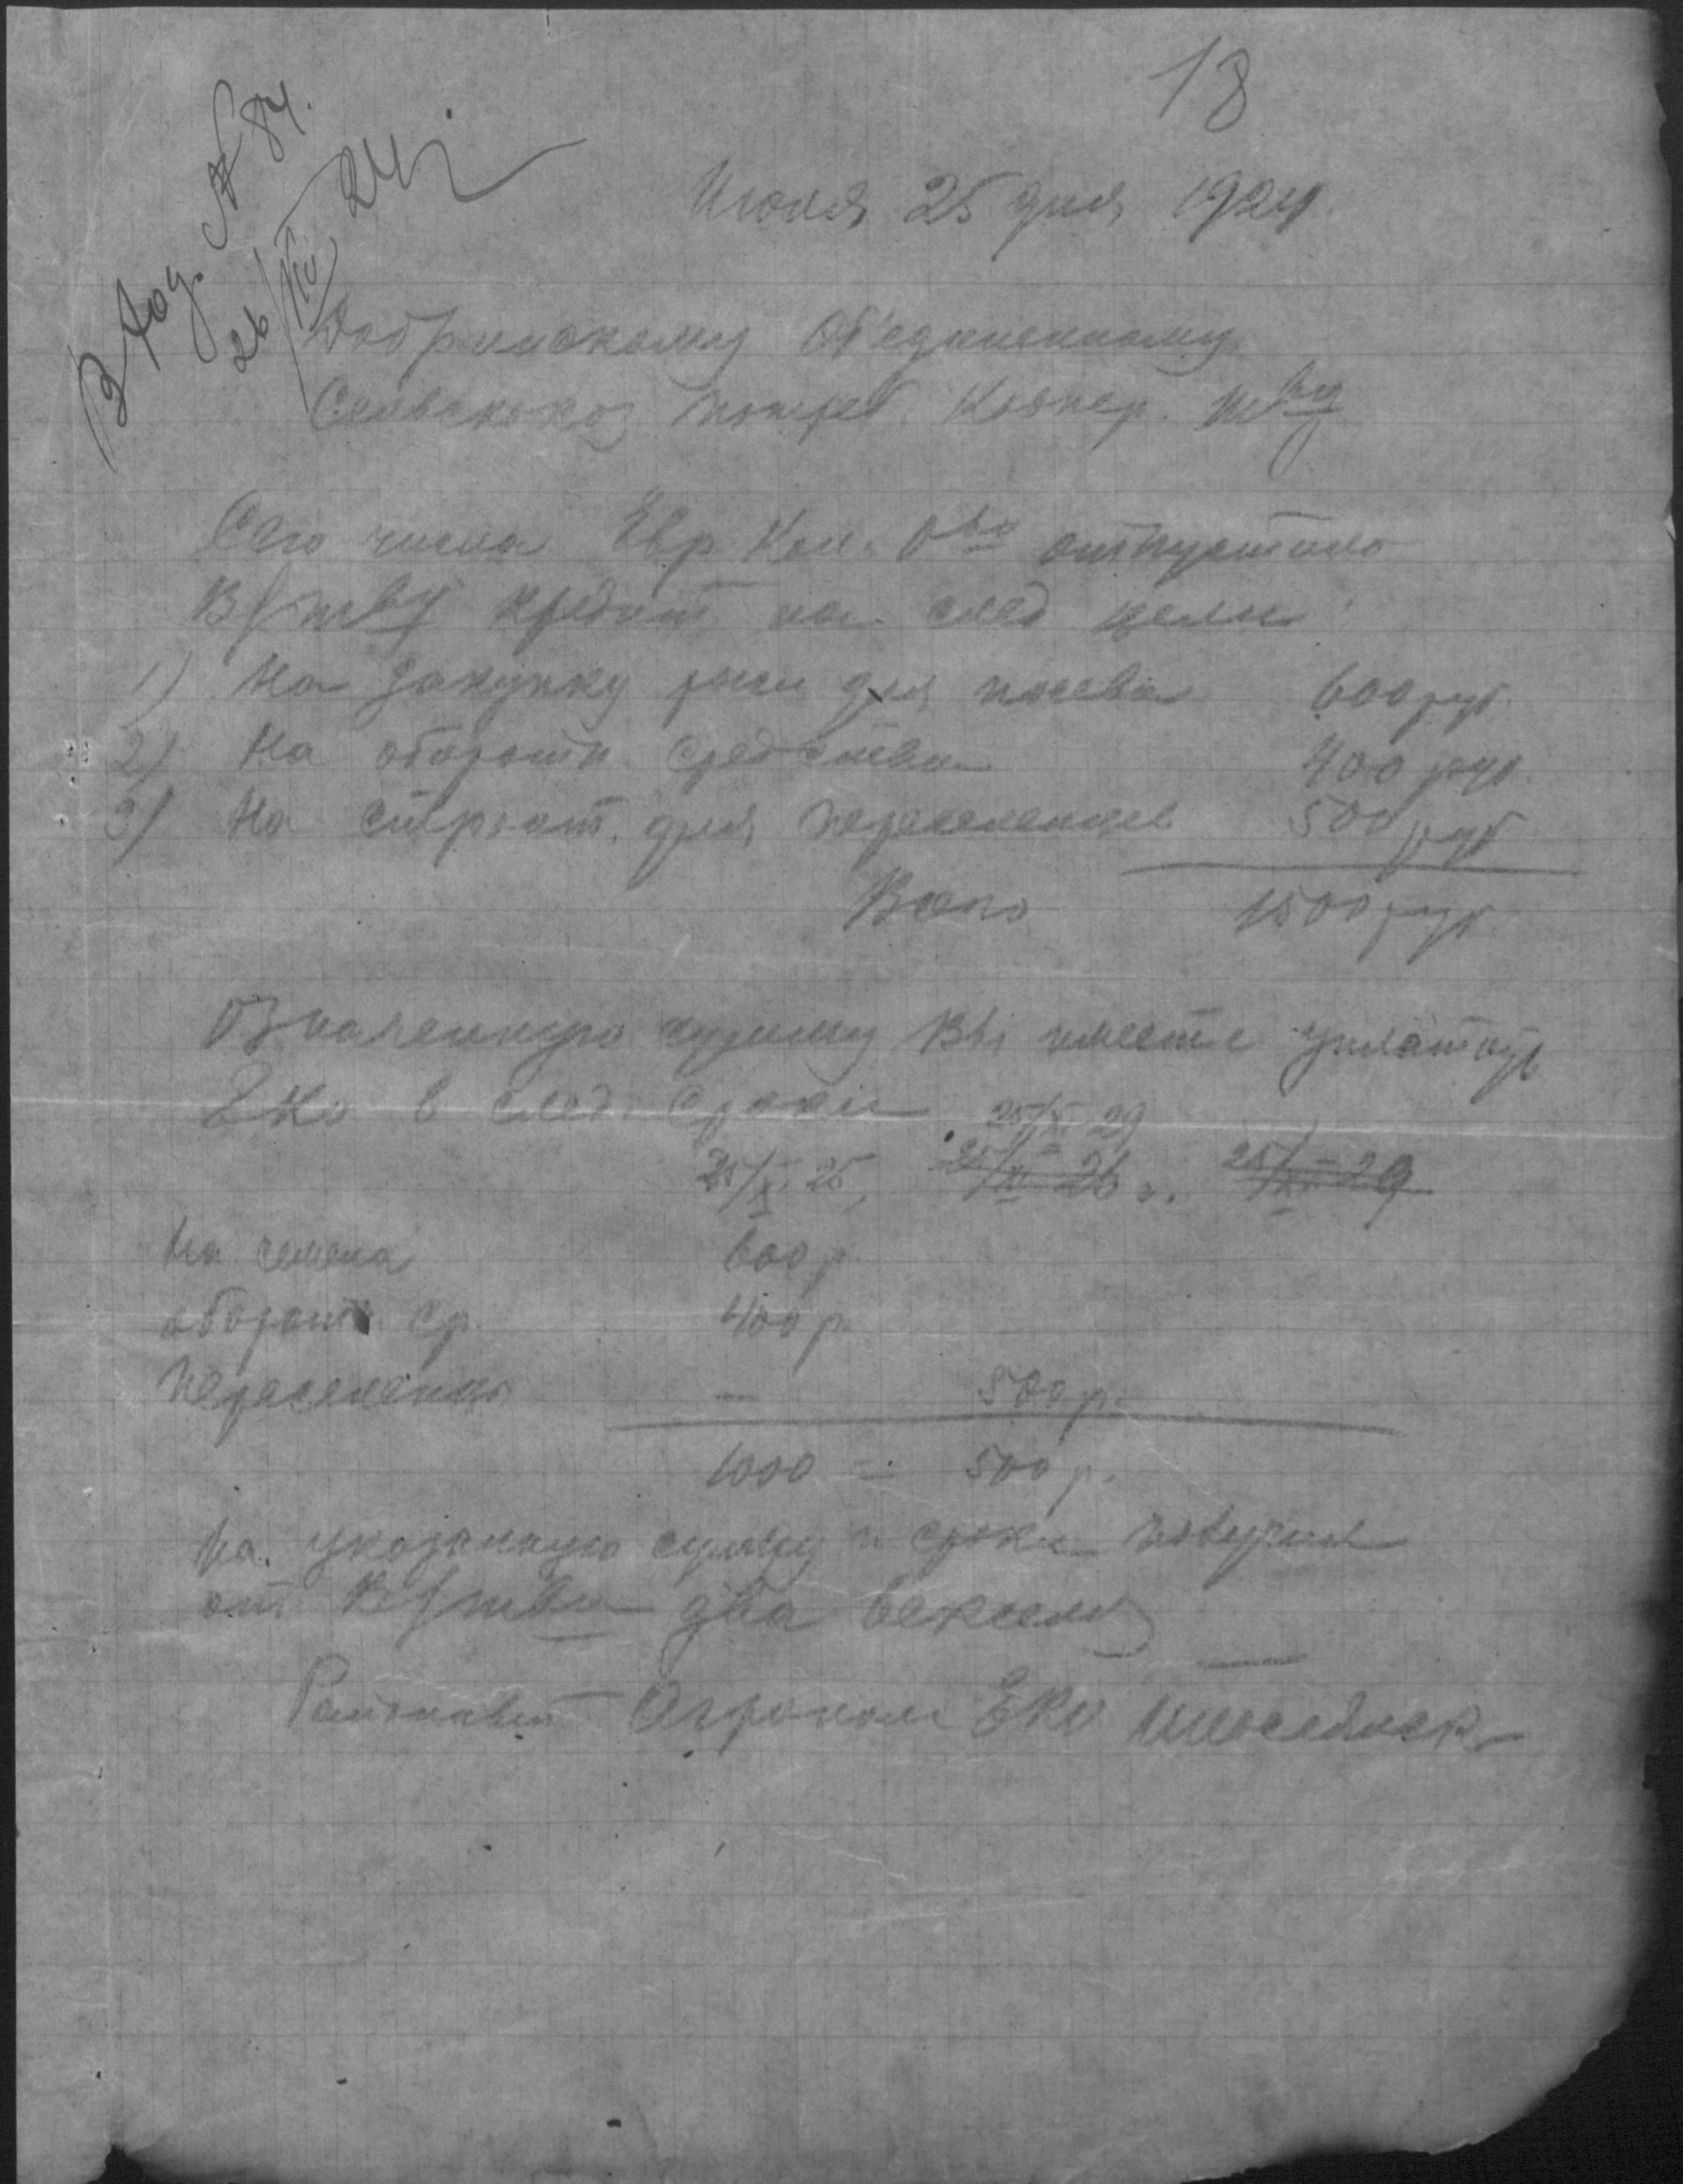 18
Входя. № 84.
26/VII 24 г.
Июля 25 дня 1924
Добринскому Об'единенному
Сельскохоз потреб. Коопер. т-ву
Сего числа Евр. Кол. О-во отпустило
В/тву кредит на след цели:
1) На закупку ржи для посева 600 руб.
2) На оборотн. средства 400 руб.
3) На строит. для переселенцев 500 руб
Всего 1500 руб
Означенную сумму Вы имеете уплатить
ЕКО в след. сроки
25/X 29
25/X 25, 26 г. 29
На семена 600 р
оборотн ср. 400 р.
Переселенцы — 500 р.
1000 = 500 р.
На указанную сумму и сроки получил
от В/тва два векселя
Районный Агроном ЕКО